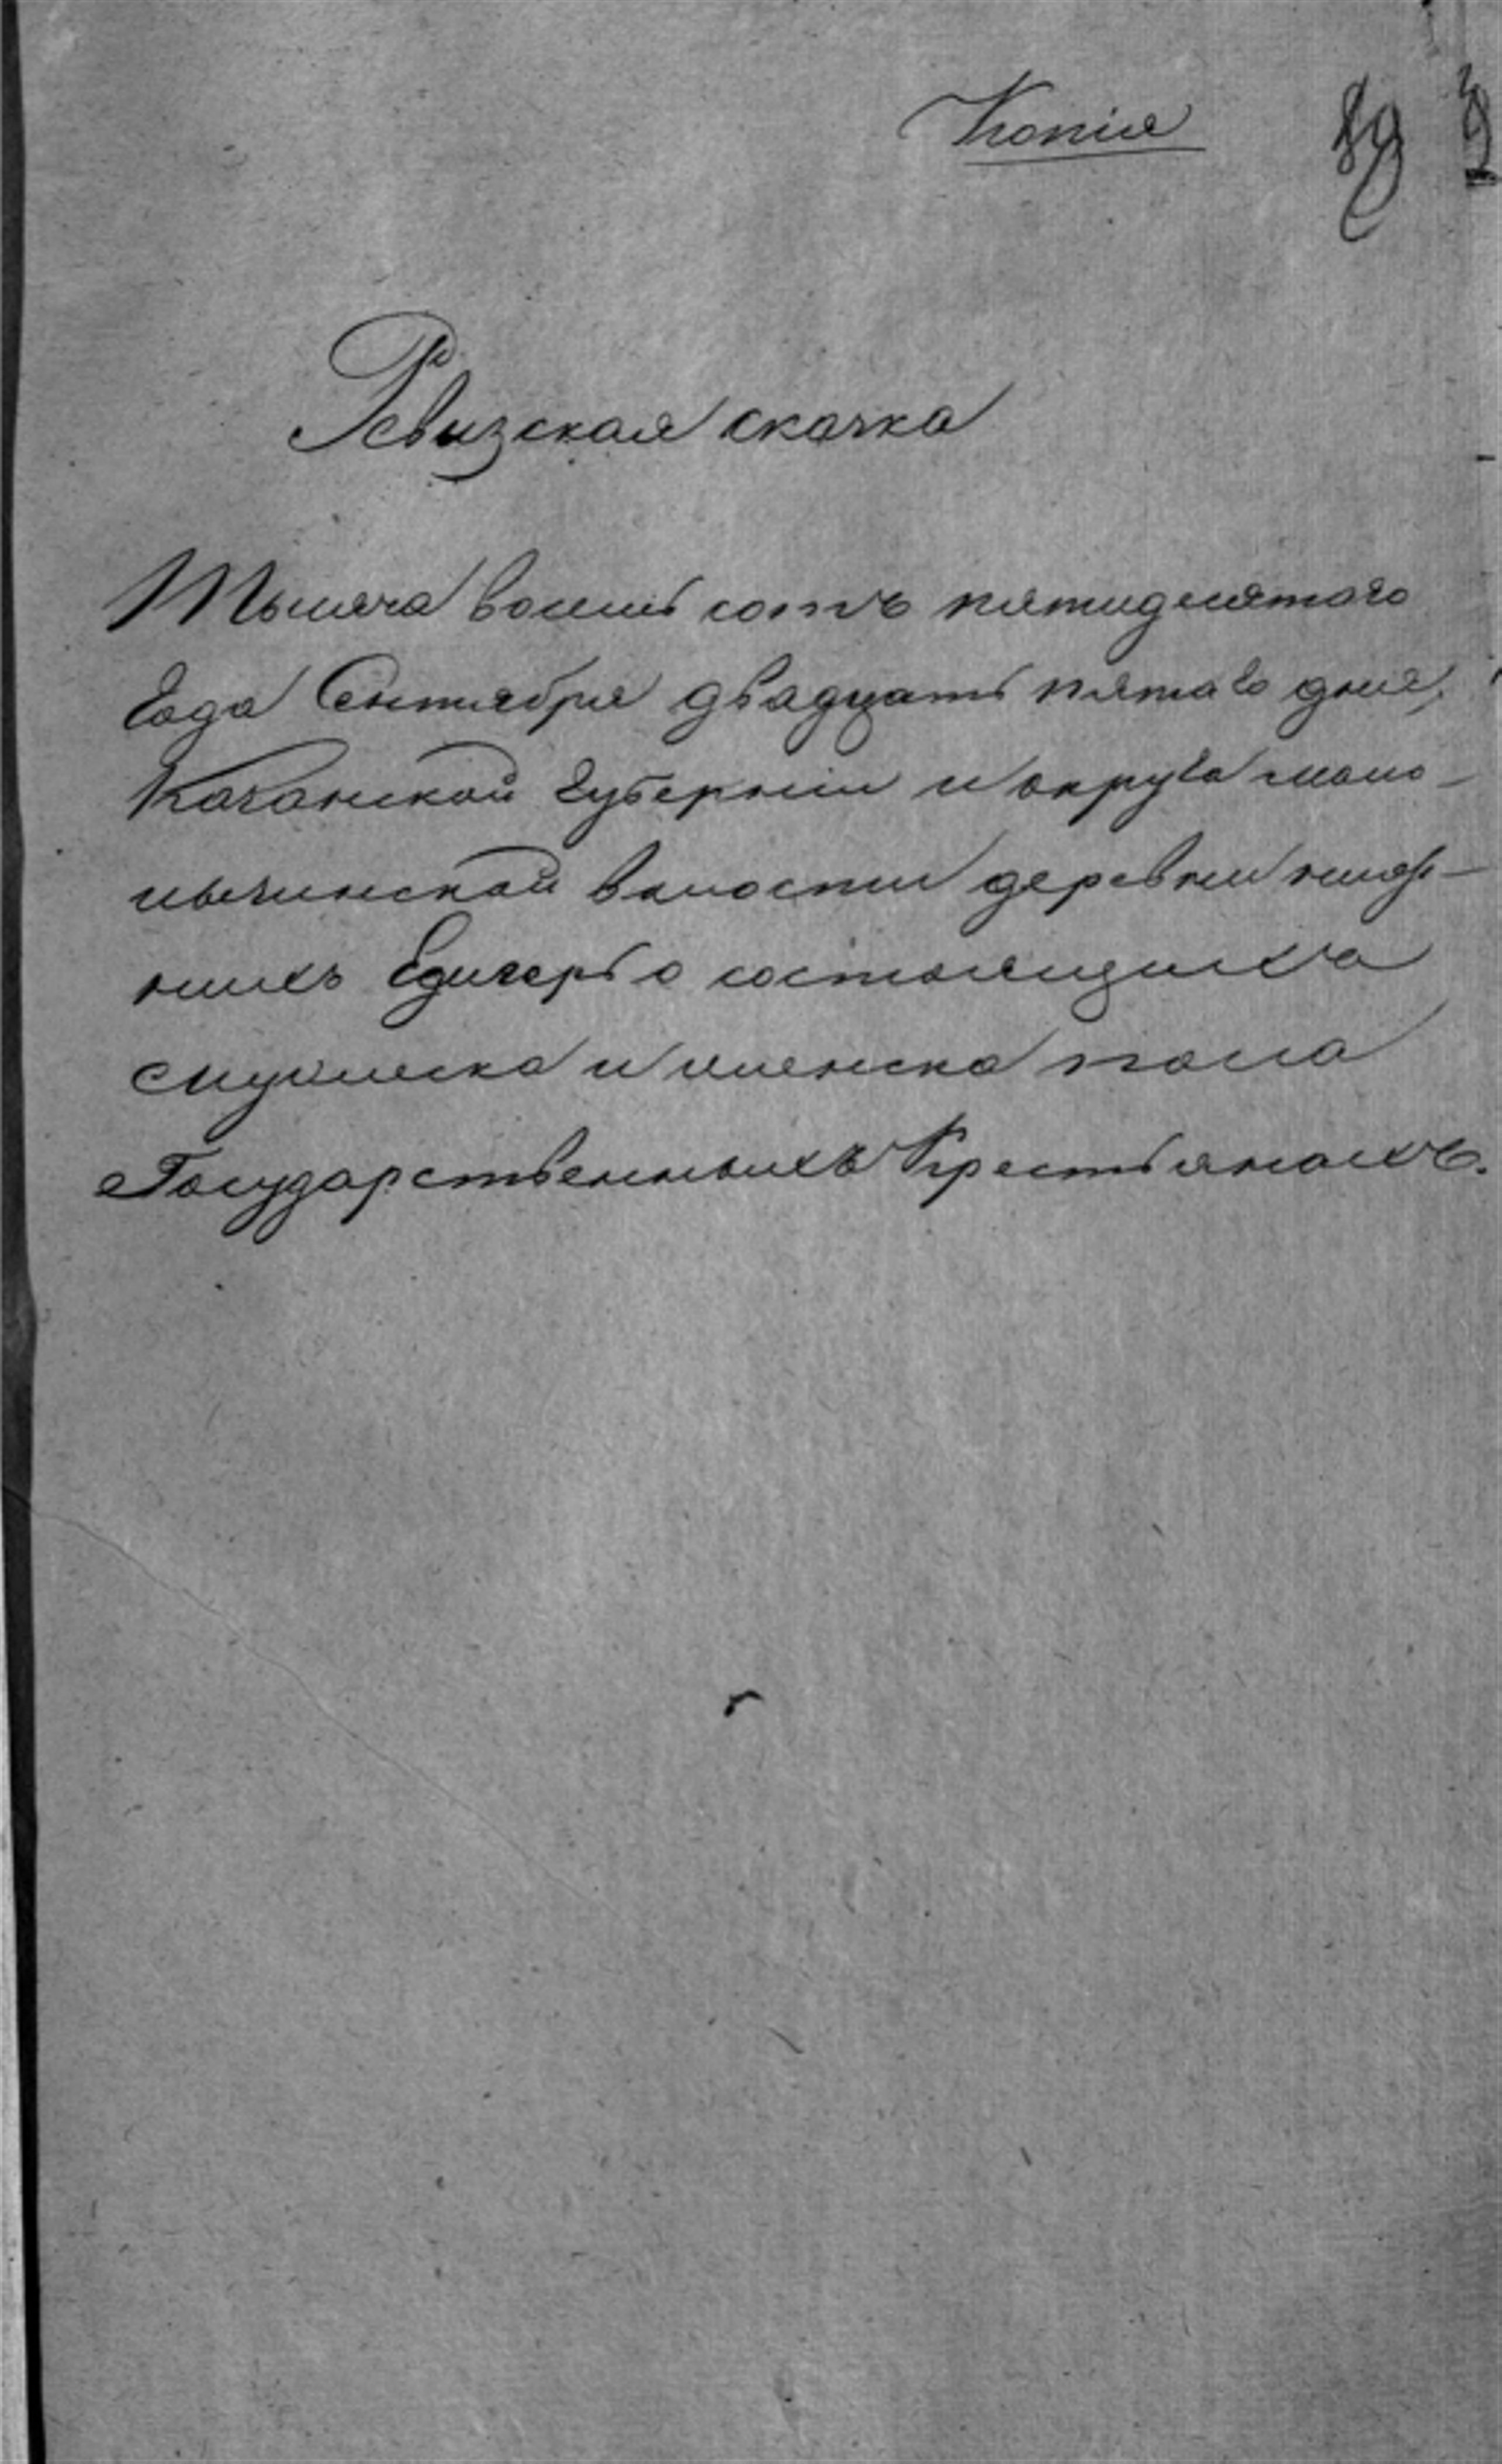 Копія
89
Ревизская скаска
Тысяча восемь сотъ пятидесятаго
Года Сентября двадцать пятаго дня,
Казанской Губерніи и округа мамо-
нычинской волости деревни ниж-
нихъ Едигерь о состоящихъ
мужеска и женска пола
Государственныхъ Крестьянахъ.